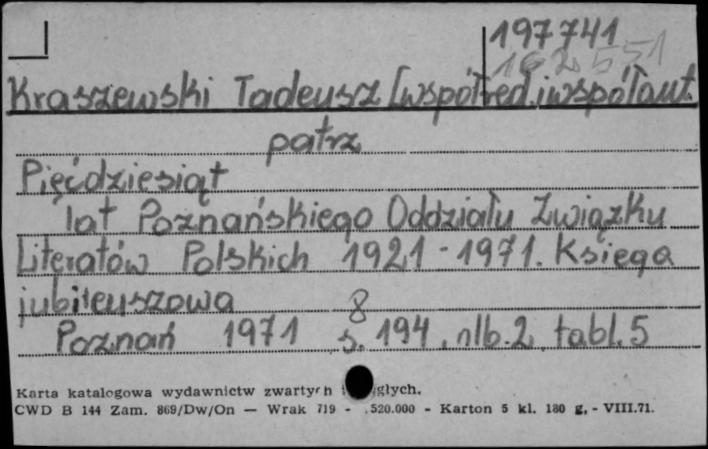 197741
162551
Kraszewski Tadeusz [współred. i współaut.
patrz
Pięćdziesiąt
lat Poznańskiego Oddziału Związku
Literatów Polskich 1921-1971. Księga
jubileuszowa 8
Poznań 1971 s. 194, nlb. 2, tabl. 5
Karta katalogowa wydawnictw zwartych głych.
CWD B 144 Zam. 869/Dw/On — Wrak 719 - .520.000 - Karton 5 kl. 180 g. - VIII.71.